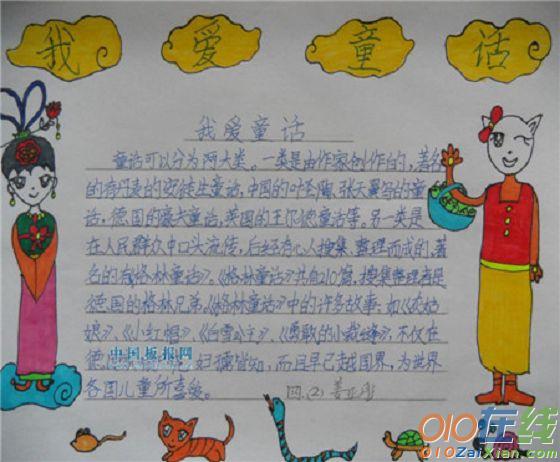 我 爱 童 话
我爱童话
童话可以分为两大类。一类是由作家创作的,著名
的有丹麦的安徒生童话,中国的叶圣陶、张天翼写的童
话,德国的豪夫童话,英国的王尔德童话等。另一类是
在人民群众中口头流传,后经有心人搜集整理而成的,著
名的有《格林童话》。《格林童话》共有210篇,搜集整理者是
德国的格林兄弟。《格林童话》中的许多故事,如《灰姑
娘》、《小红帽》、《白雪公主》、《勇敢的小裁缝》,不仅在
德国 妇孺皆知,而且早已越国界,为世界
中国板报网
各国儿童所喜爱。 四.(2) 姜
010在线
010ZaiXian.com